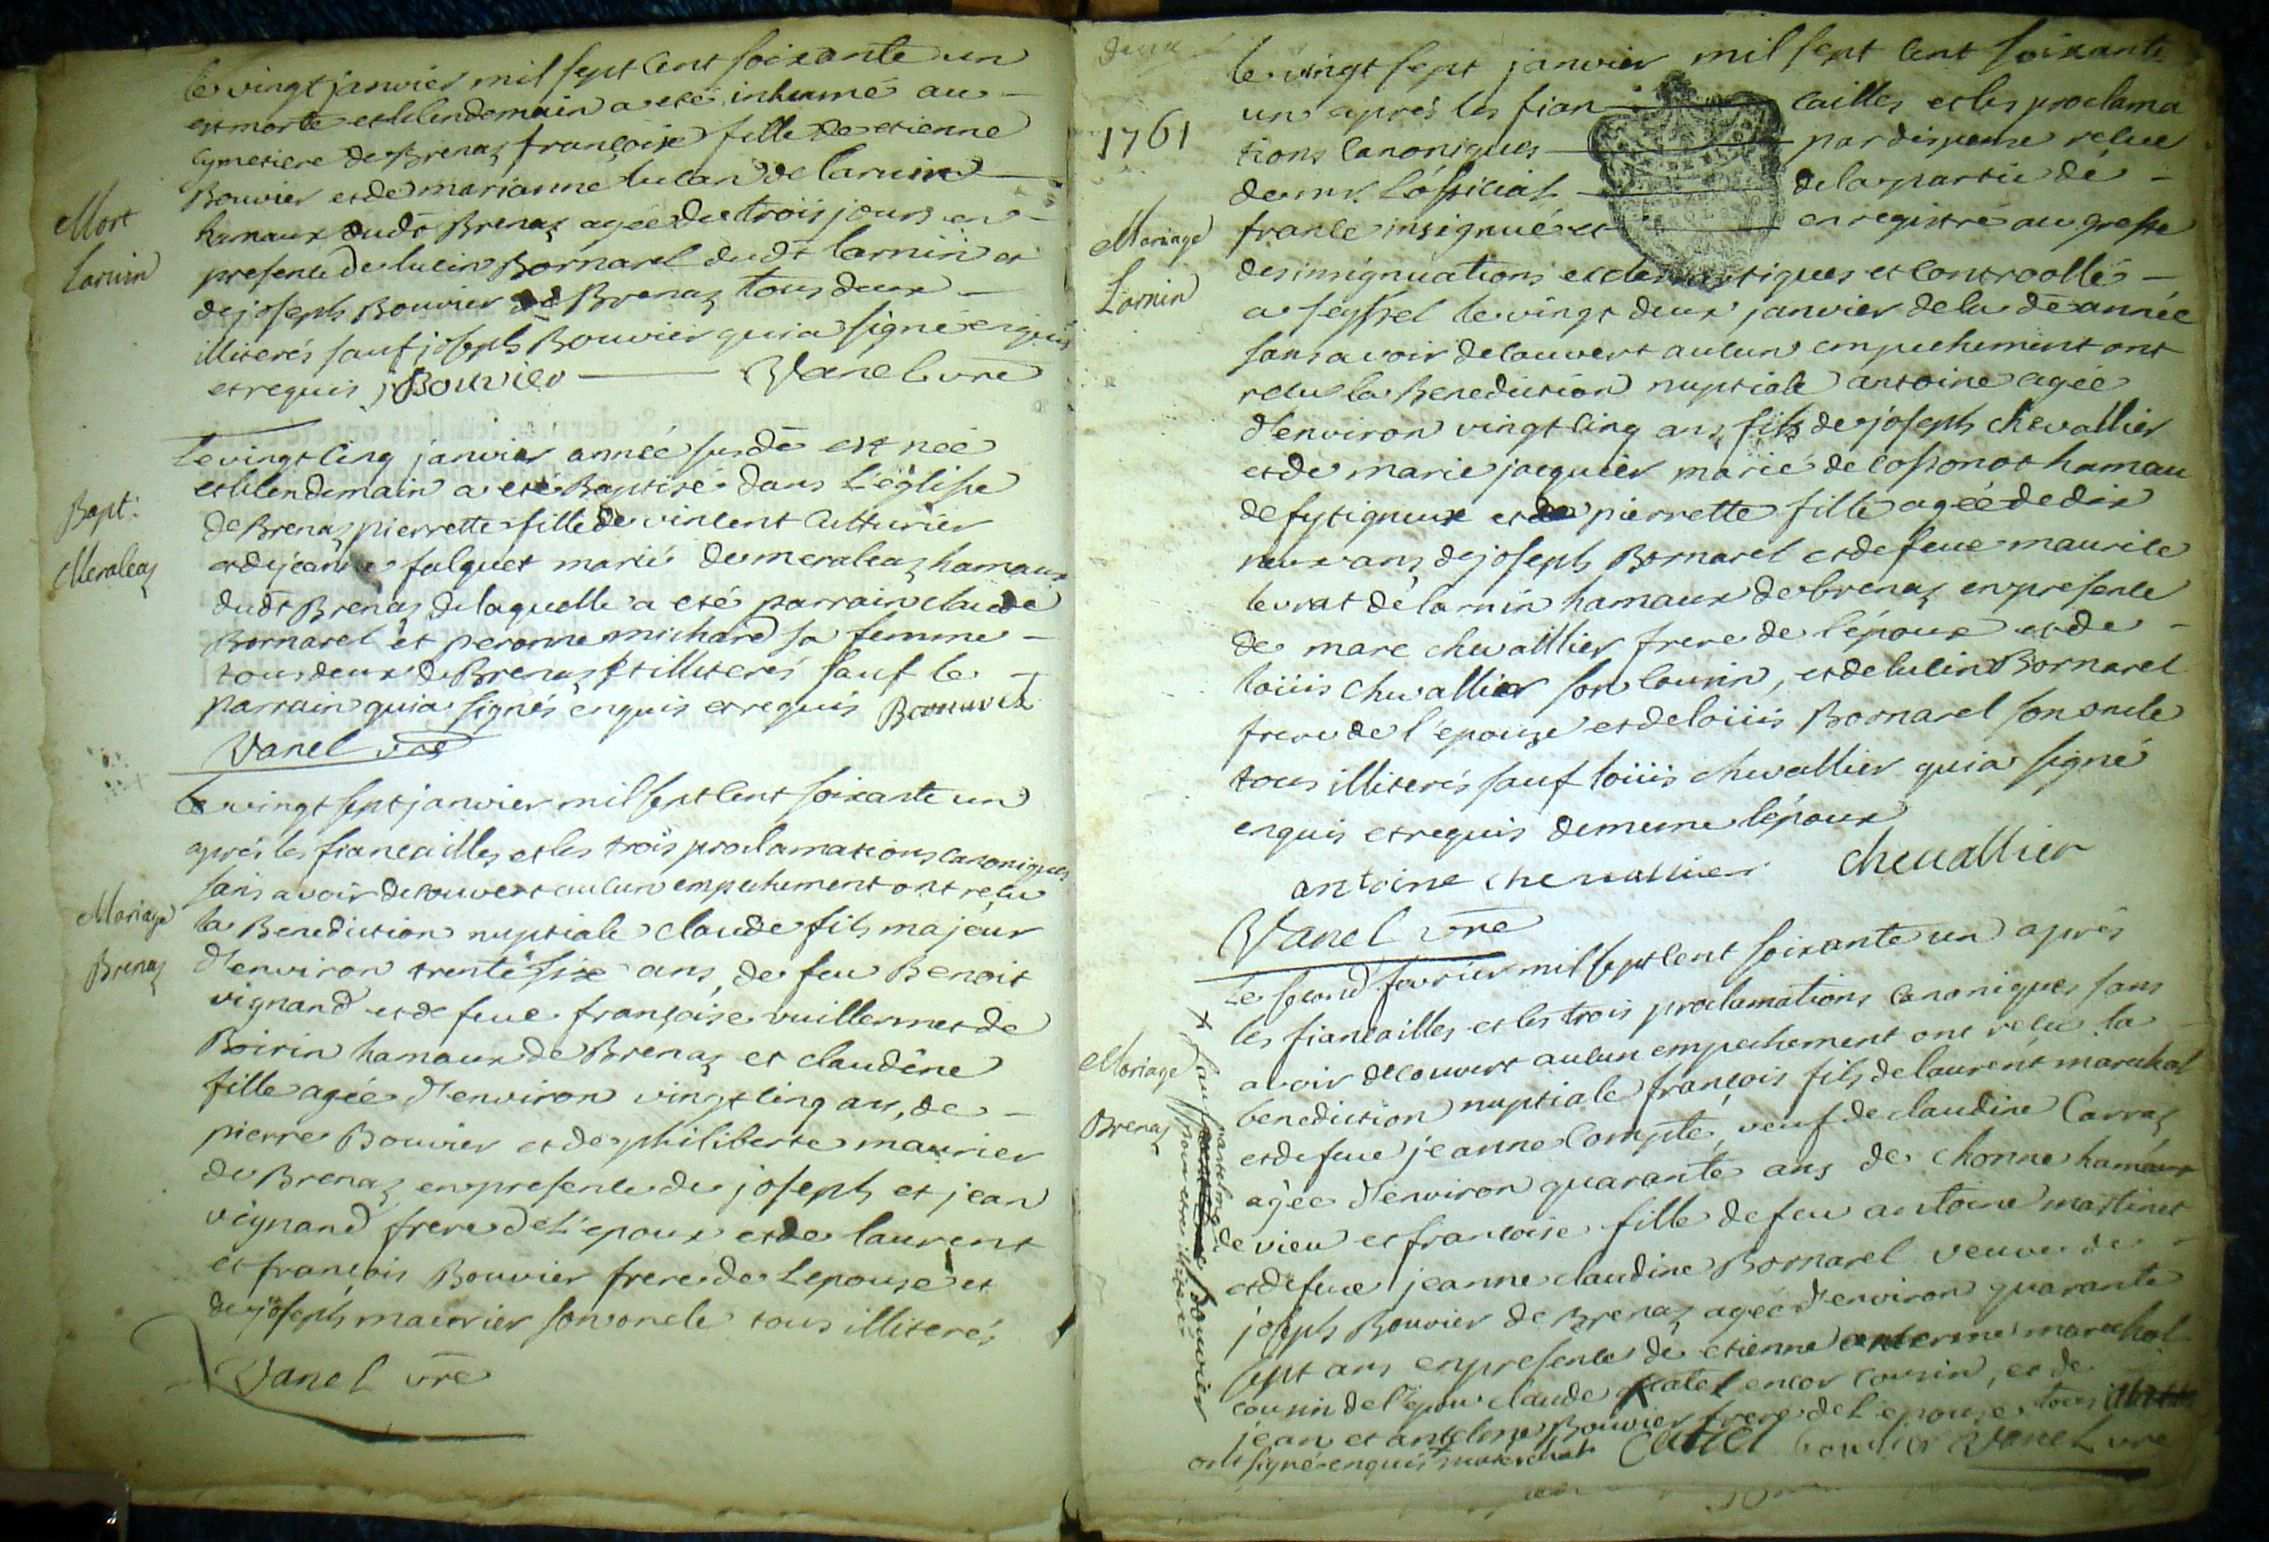 le vingt janvier mil sept cent soixante un
est morte et le lendemain a eté inhumé au
cymetiere de Brenaz françoise fille de etienne
Bouvier et de marianne de Larnin
hamaux dudt Brenaz agée de trois jours en
presence de lucin Bornarel dudt Larnin et
de joseph Bouvier de Brenaz tous deux
illiterés sauf joseph Bouvier qui a signé enquis
et requis j Bouvier Vanel vre
Mort
Larnin
Le vingt cinq janvier année susde est née
et le lendemain a eté Baptisé dans L'église
de Brenaz pierrette fille de vincent Cutturier
et de jeanne fulquet mariés de meraleaz hamaux
dudt Brenaz de laquelle a eté parrain claude
Bornarel et peronne michard sa femme
tous deux de Brenaz et illiterés sauf le
parrain qui a signés enquis et requis
Vanel vre
Bapt:
Meraleaz
Le vingt sept janvier mil sept cent soixante un
après les fiancailles et les trois proclamations canoniques
sans avoir decouvert aucun empechement ont recu
la Benediction nuptiale claude fils majeur
d'environ trente six ans, de feu Benoit
vignand et de feue françoise vuillermet de
Boirin hamaux de Brenaz et claudine
fille agée d'environ vingt cinq ans, de
pierre Bouvier et de philiberte maurier
de Brenaz en presence de joseph et jean
vignand frere de L'epoux et de laurent
et françois Bouvier frere de Lepouse et
de joseph maurier son oncle tous illiterés
Vanel vre
Mariage
Brenaz
deux
1761
le vingt sept janvier mil sept cent soixante
un après les fian cailles et les proclama
tions canoniques par dispense recue
de mr. L'official de la partie de
france insignué et enregistré au greffe
des insignuations ecclesiastiques et controollés
a seyssel le vingt deux janvier de la de année
sans avoir decouvert aucun empechement ont
recu la Benediction nuptiale antoine agée
d'environ vingt cinq ans fils de joseph chevallier
et de marie jacquier marié de cossonot hamau
de fytigneux et pierrette fille agée de dix
neuf ans de joseph Bornarel et de feue maurice
levrat de larnin hamaux de brenaz en presence
de marc chevallier frere de l'époux et de
loüis chevallier son cousin, et de lucin Bornarel
frere de l'épouse et de loüis Bornarel son oncle
tous illiterés sauf loüis chevallier qui a signé
enquis et requis de meme l'époux
antoine chevallier chevallier
Vanel vre
Mariage
Larnin
Le second fevrier mil sept cent soixante un après
les fiancailles et les trois proclamations canoniques sans
avoir decouvert aucun empechement ont recu la
benediction nuptiale françois fils de laurent marechal
et de feue jeanne Compte, veuf de claudine Carraz
agée d'environ quarante ans de chonne hamaux
de vieu et francoise fille de feu antoine martinet
et de feue jeanne claudine Bornarel veuve de
joseph Bouvier de Brenaz agée d'environ quarante
sept ans en presence de etienne marechal
cousin de l'epou claude encor cousin, et de
jean et antelme Bouvier frere de L'epouse tous
ont signé enquis marechal Vanel vre
Mariage
Brenaz
x sauf antelme bouvier
pour etre illiteré